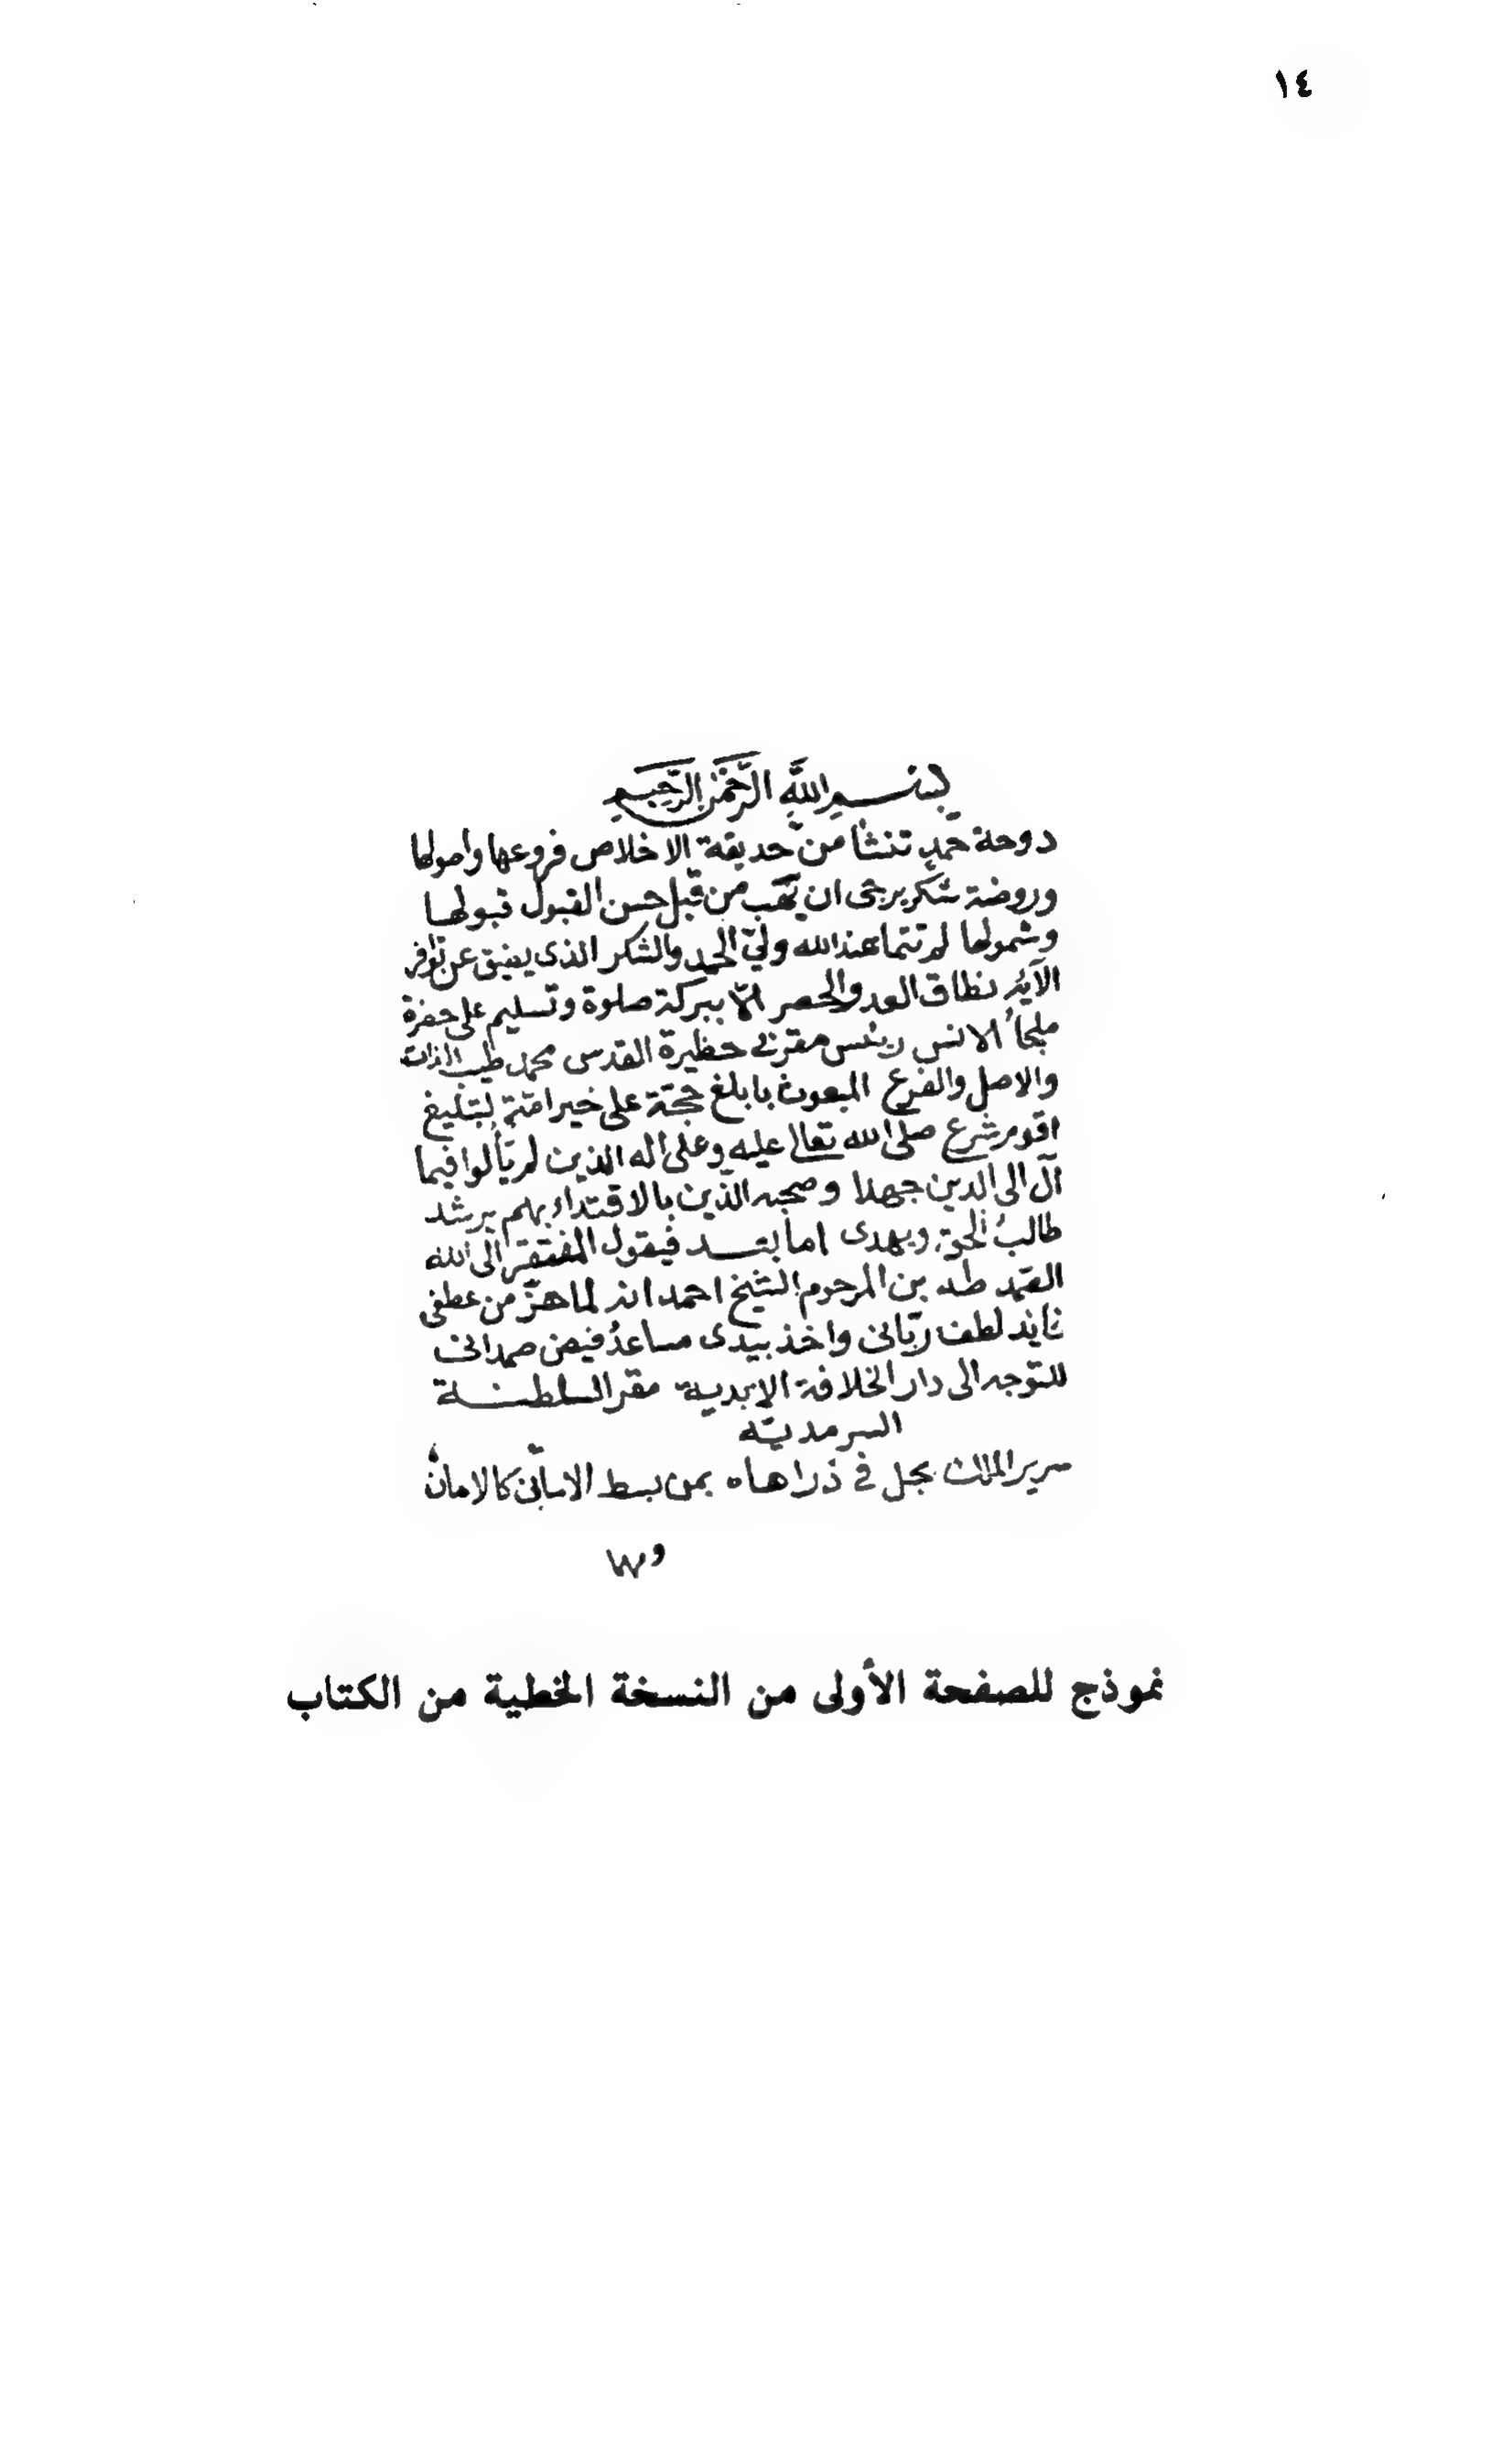 ١٤
بسم الله الرحمن الرحيم
دوحة حمد تنشأ من حديقة الاخلاص فروعها واصولها
وروضة شكر يرجى ان تهب من قبل حسن القبول قبولها
وشمولها لم تتما عند الله ولي الحمد والشكر الذى يضيق عن توافر
الآيه نطاق العد والحصر الا ببركة صلوة وتسليم على حضرة
ملجأ الانس رئيس مقربى حظيرة القدس محمد طيب الذات
والاصل والفرع المبعوث بابلغ حجة على خير امة لتبليغ
اقوم شرع صلى الله تعالى عليه وعلى اله الذين لم يألوا فيما
آل الى الدين جهدا وصحبه الذين بالاقتداء بهم يرشد
طالب الحق ويهدى اما بعد فيقول المفتقر الى الله
الصمد طه بن المرحوم الشيخ احمد انه لما هز من عطفى
تايد لطف ربانى واخذ بيدى مساعد فيض صمدانى
للتوجه الى دار الخلافة الابدية مقر السلطنة
السرمدية
سرير الملك بجل فى ذراها ه بمن بسط الامانى كالامان
وبها
نموذج للصفحة الأولى من النسخة الخطية من الكتاب